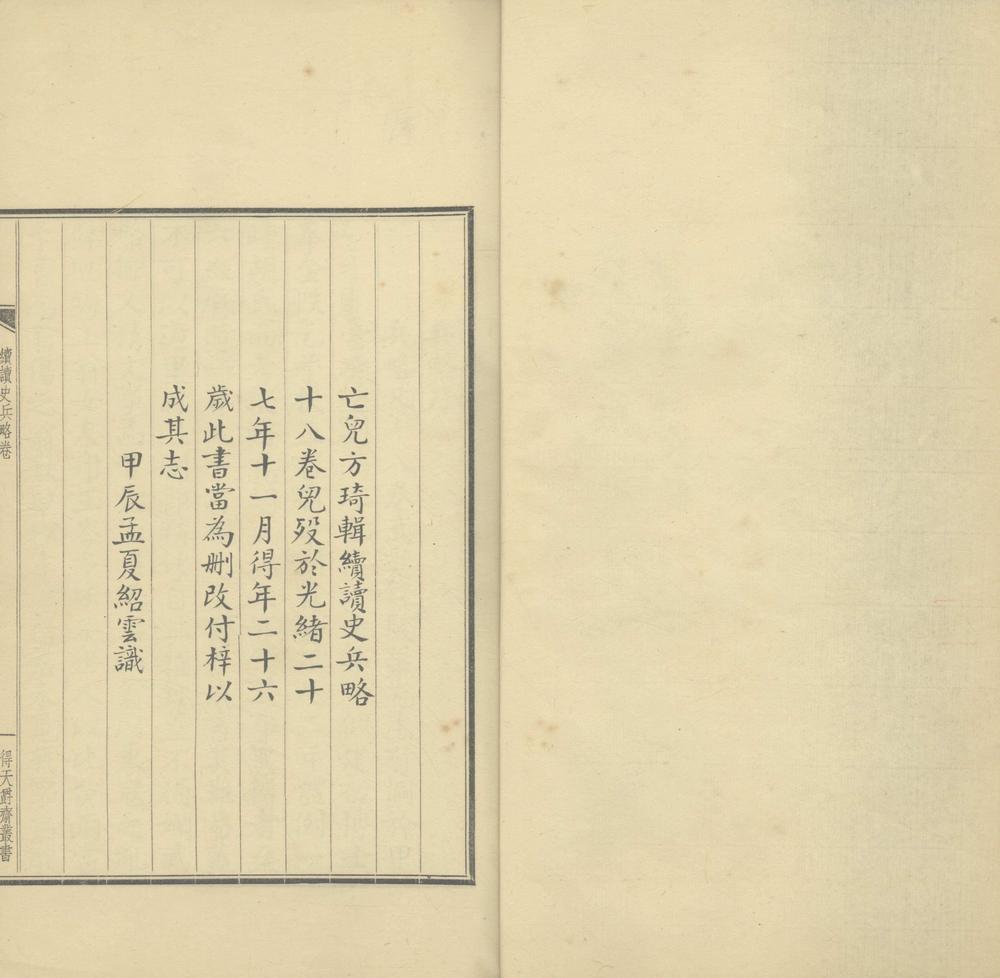 亡兒方琦輯續讀史兵略
十八卷兒歿於光緒二十
七年十一月得年二十六
歲此書當為刪改付梓以
成其志
甲辰孟夏紹雲識
續讀史兵略卷
得天爵齋叢書